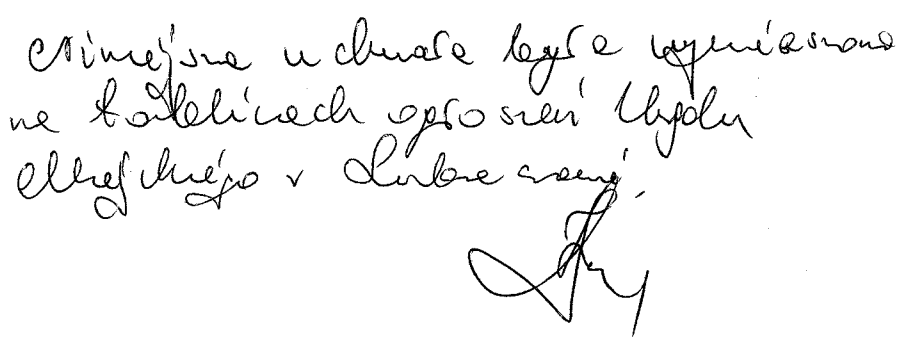 Niniejsza uchwała była wywieszona
na tablicach ogłoszeń Urzędu
Miejskiego w Lubaczowie.